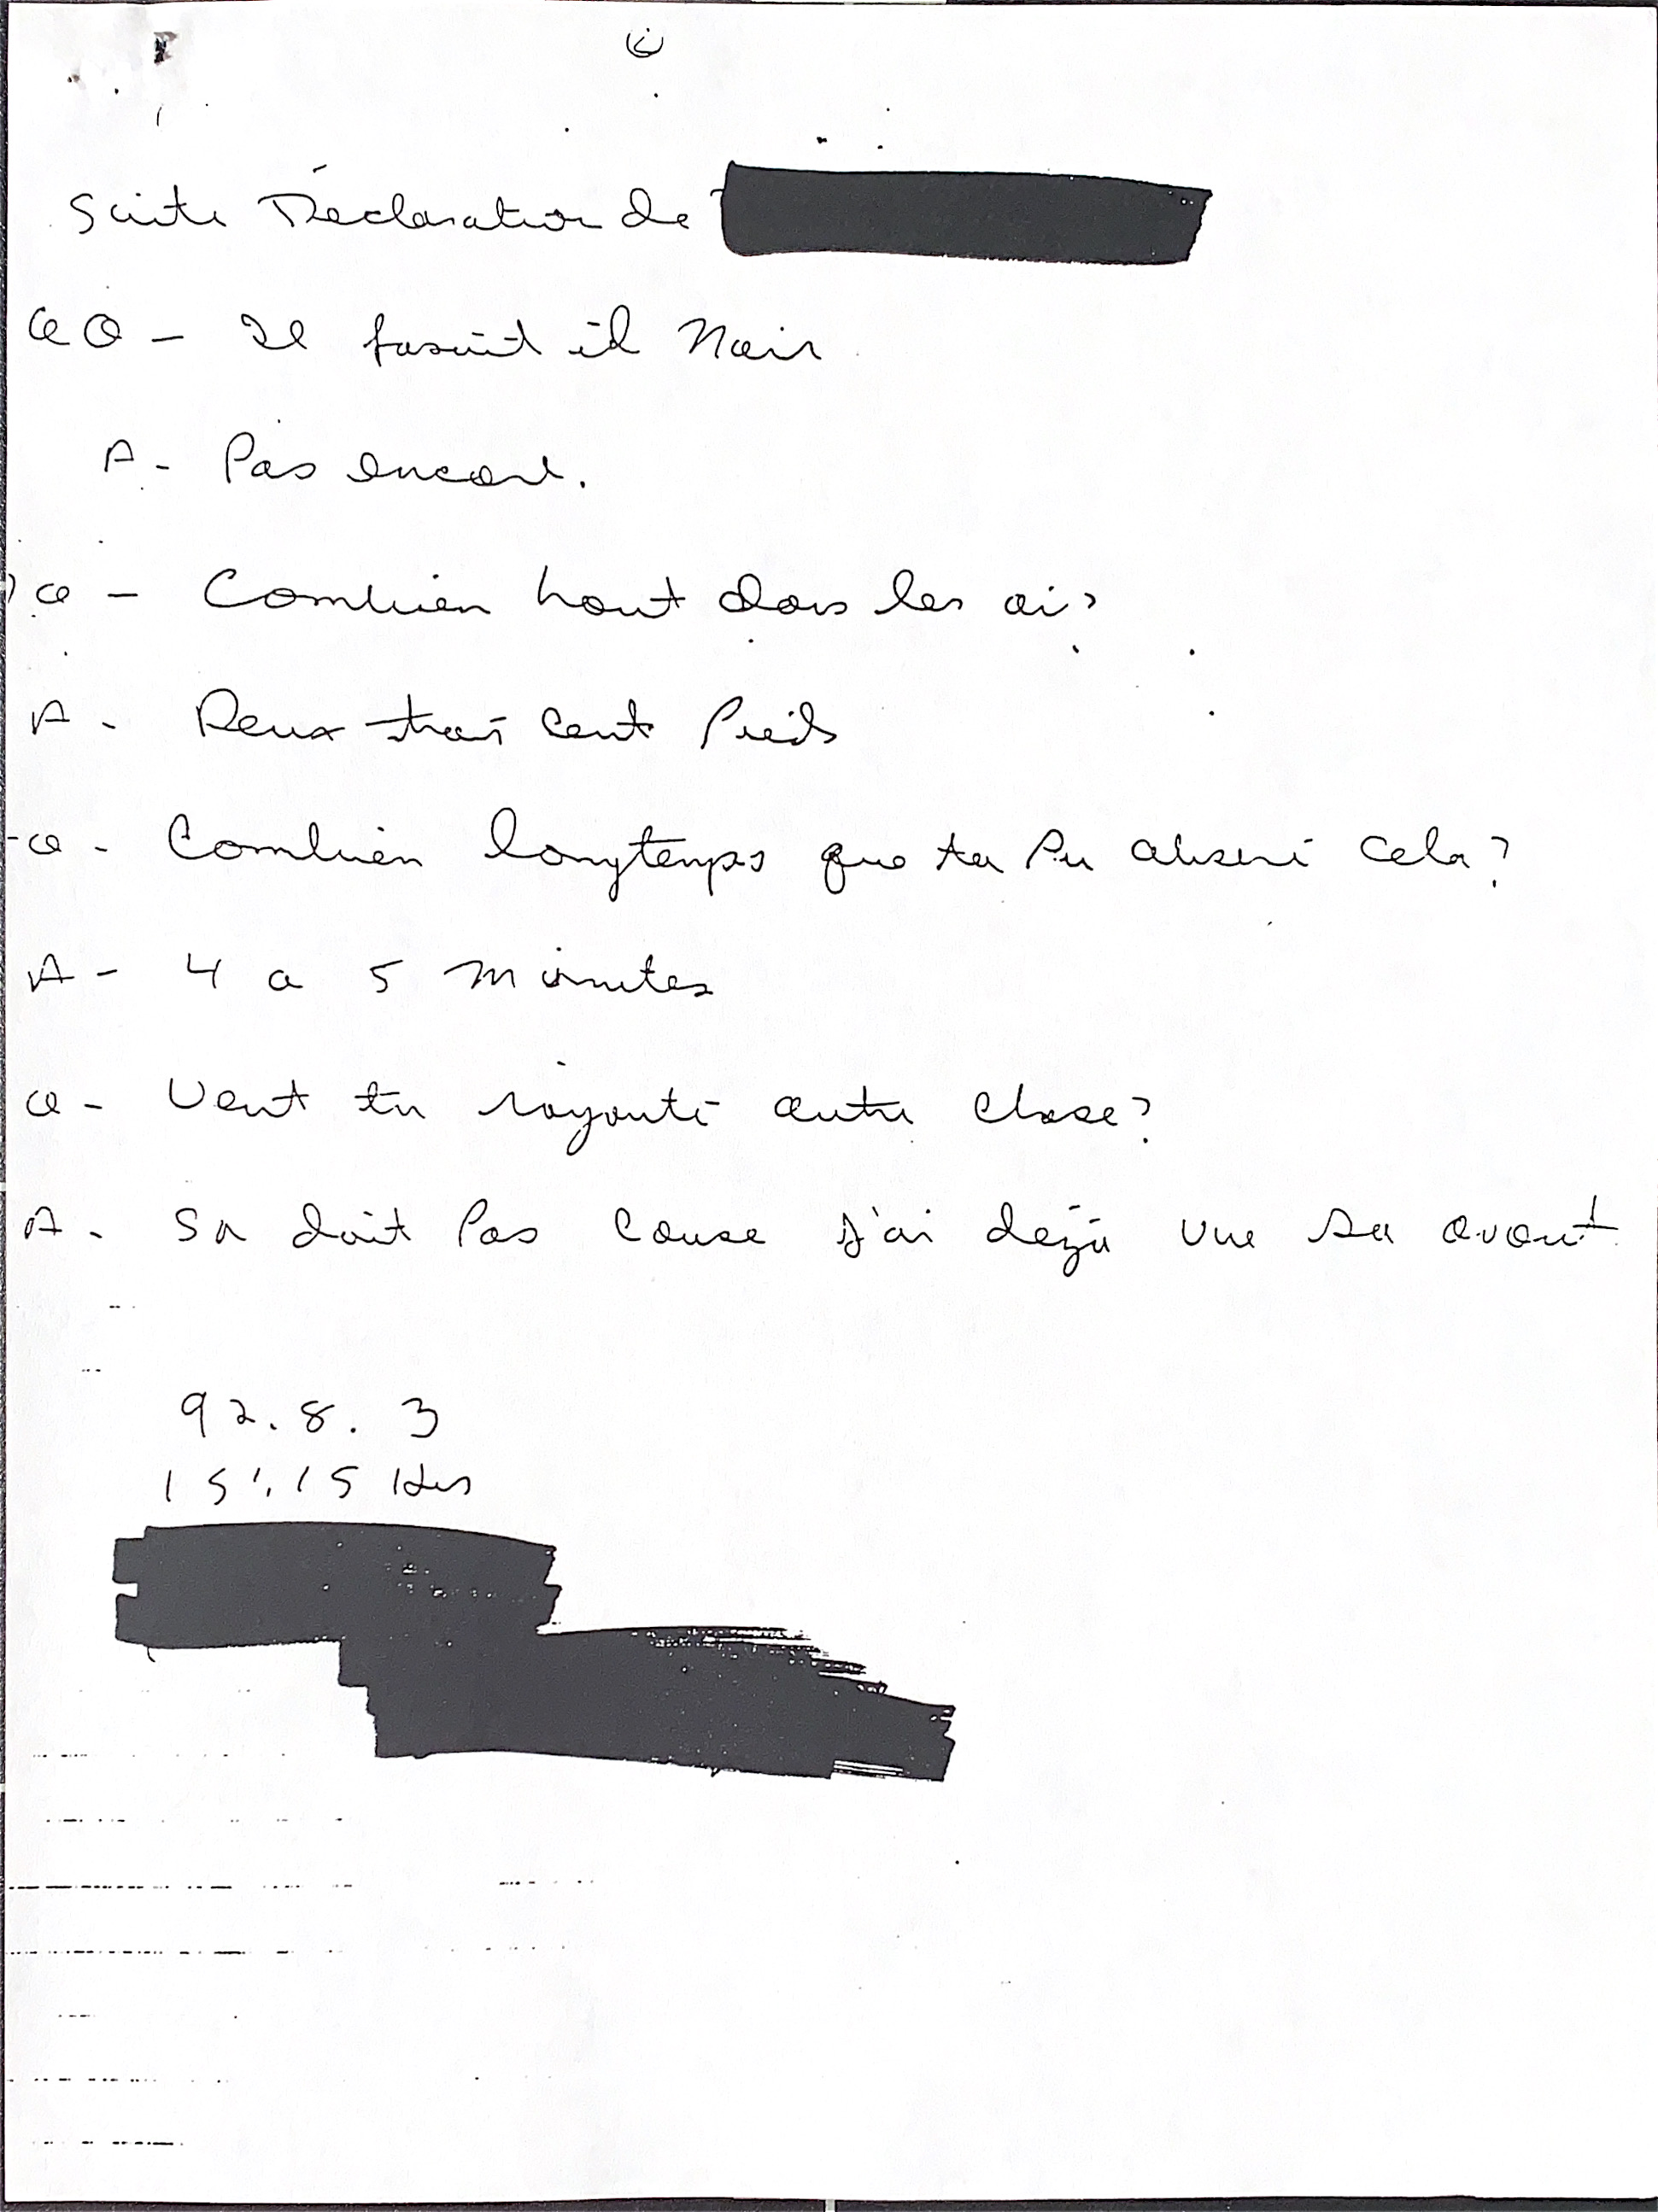 Suite Déclaration de
Q - Il fasait il Noir
A - Pas encore.
Q - Combien haut dans les air?
A - Deux trois cent Pieds
Q - Combien longtemps que ta Pu observé cela?
A - 4 a 5 minutes
Q - Veut tu rajouté autre chose?
A - Sa doit Pas cause J'ai dejà vue sa avant
92.8.3
15:15 Hrs